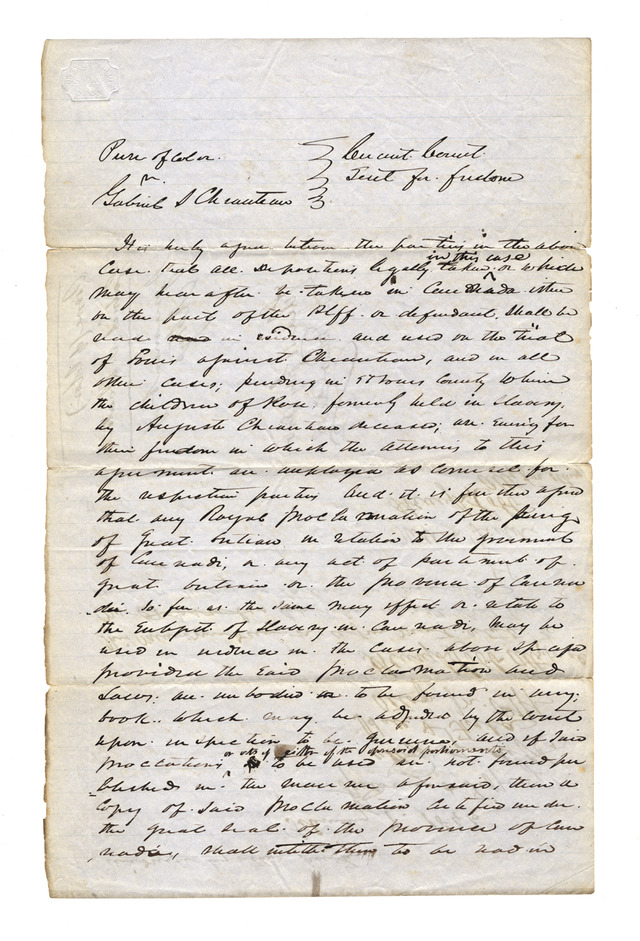 Pierre of Color. Circuit Court.
vs. Suit for freedom
Gabriel S Choauteau
It is hereby agree between the parties in the above
in this case
case that all depositions legally taken or which
may hear after be taken in Cannada either
on the part of the Plff. or defendant, shall be
read in evidence and used on the trial
of against Choauteau, and in all
other cases, pending in St Louis County where
the children of Rose formerly held in slavery,
by Auguste Choauteau deceased, are sueing for
their freedom in which the attornies to this
agreement are employed as council for
the respective parties And it is further agree
that any Royal Proclamation of the King
of Great britian in relation to the government
of Cannada, or any act of parlement of
great britian or the Province of Canna
da. So far as the same may effect or relate to
the Subject of Slavery in Cannada, may be
used in evidence in the cases above
provided the said Proclamation and
Laws are imbodied in to be found in any
book. Which may be adjuded by the court
upon inspection to be genuine, and if said
or acts of either of the aforesaid parliaments
Proclamations, to be used are not found pu
blished in the manner aforesaid, then a
Copy of said Proclamation certified under
the great seal of the Province of Can
nada, shall intitle them to be read in